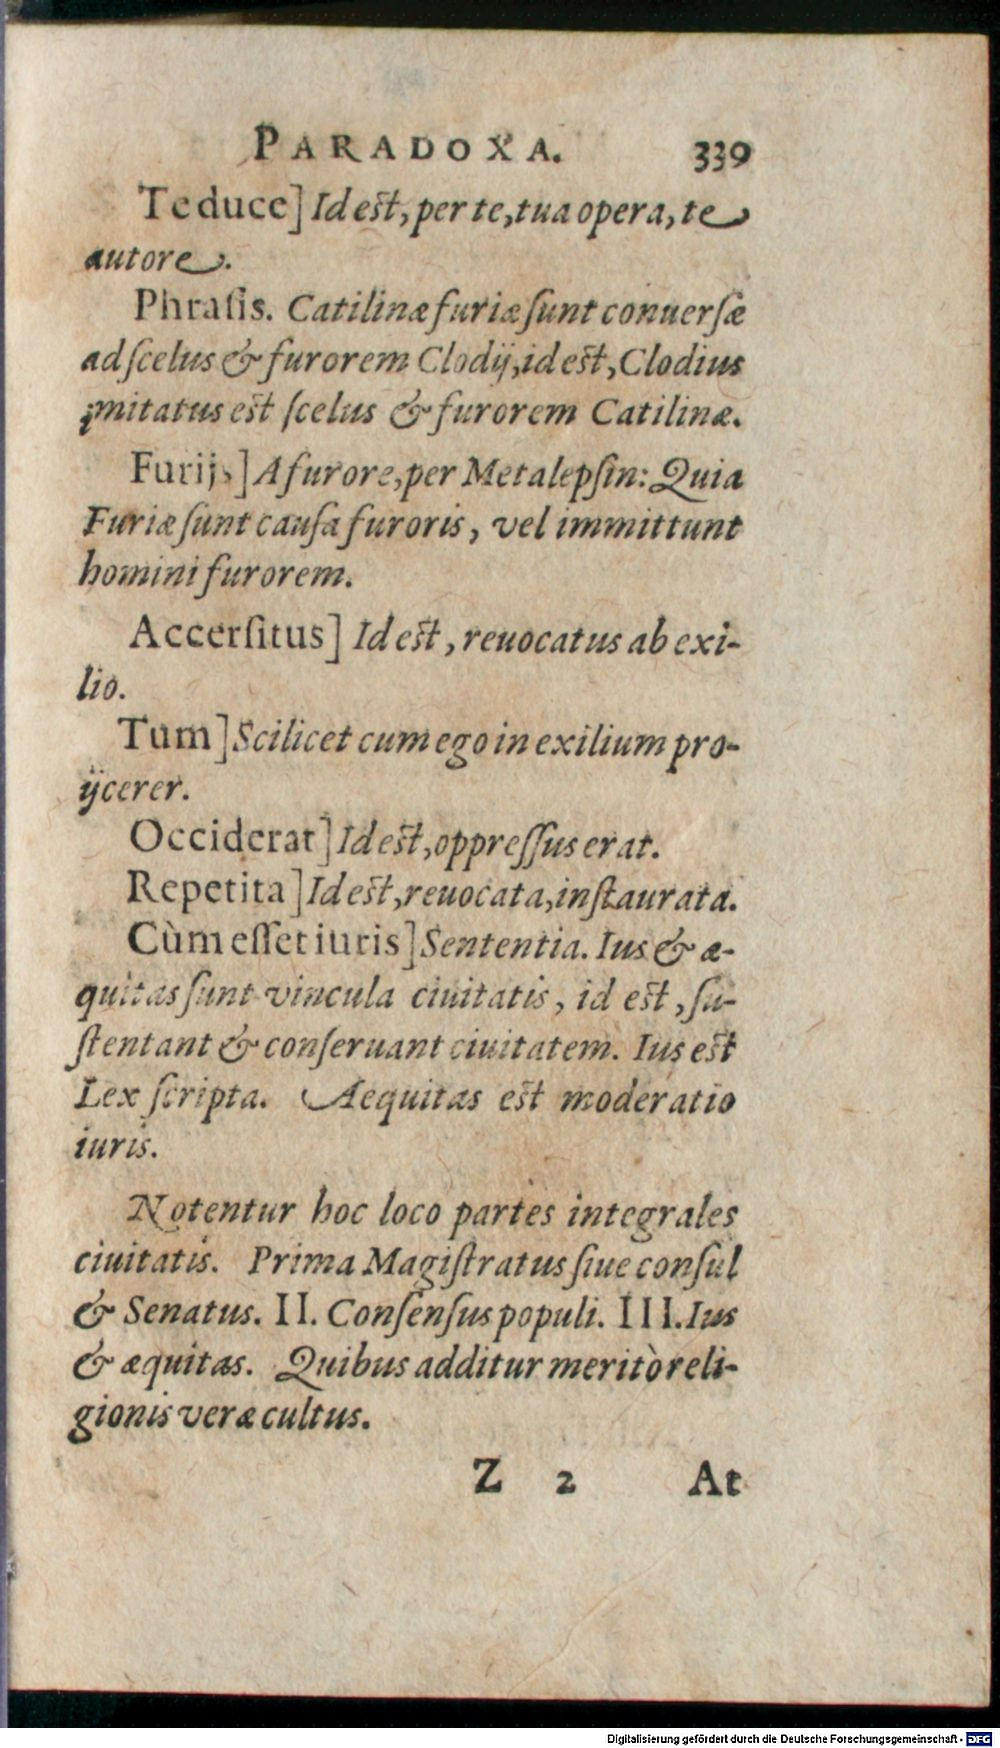 PARADOXA. 339
Te duce] Id est, per te, tua opera, te
autore.
Phrasis. Catilinæ furiæ sunt conuersæ
ad scelus & furorem Clodij, id est, Clodius
imitatus est scelus & furorem Catilinæ.
Furijs] A furore, per Metalepsin: Quia
Furiæ sunt causa furoris, vel immittunt
homini furorem.
Accersitus] Id est, reuocatus ab exi-
lio.
Tum] Scilicet cum ego in exilium pro-
ijcerer.
Occiderat] Id est, oppressus erat.
Repetita] Id est, reuocata, instaurata.
Cùm esset iuris] Sententia. Ius & æ-
quitas sunt vincula ciuitatis, id est, su-
stentant & conseruant ciuitatem. Ius est
Lex scripta. Aequitas est moderatio
iuris.
Notentur hoc loco partes integrales
ciuitatis. Prima Magistratus siue consul
& Senatus. II. Consensus populi. III. Ius
& æquitas. Quibus additur meritò reli-
gionis veræ cultus.
Z 2 At
Digitalisierung gefördert durch die Deutsche Forschungsgemeinschaft - DFG